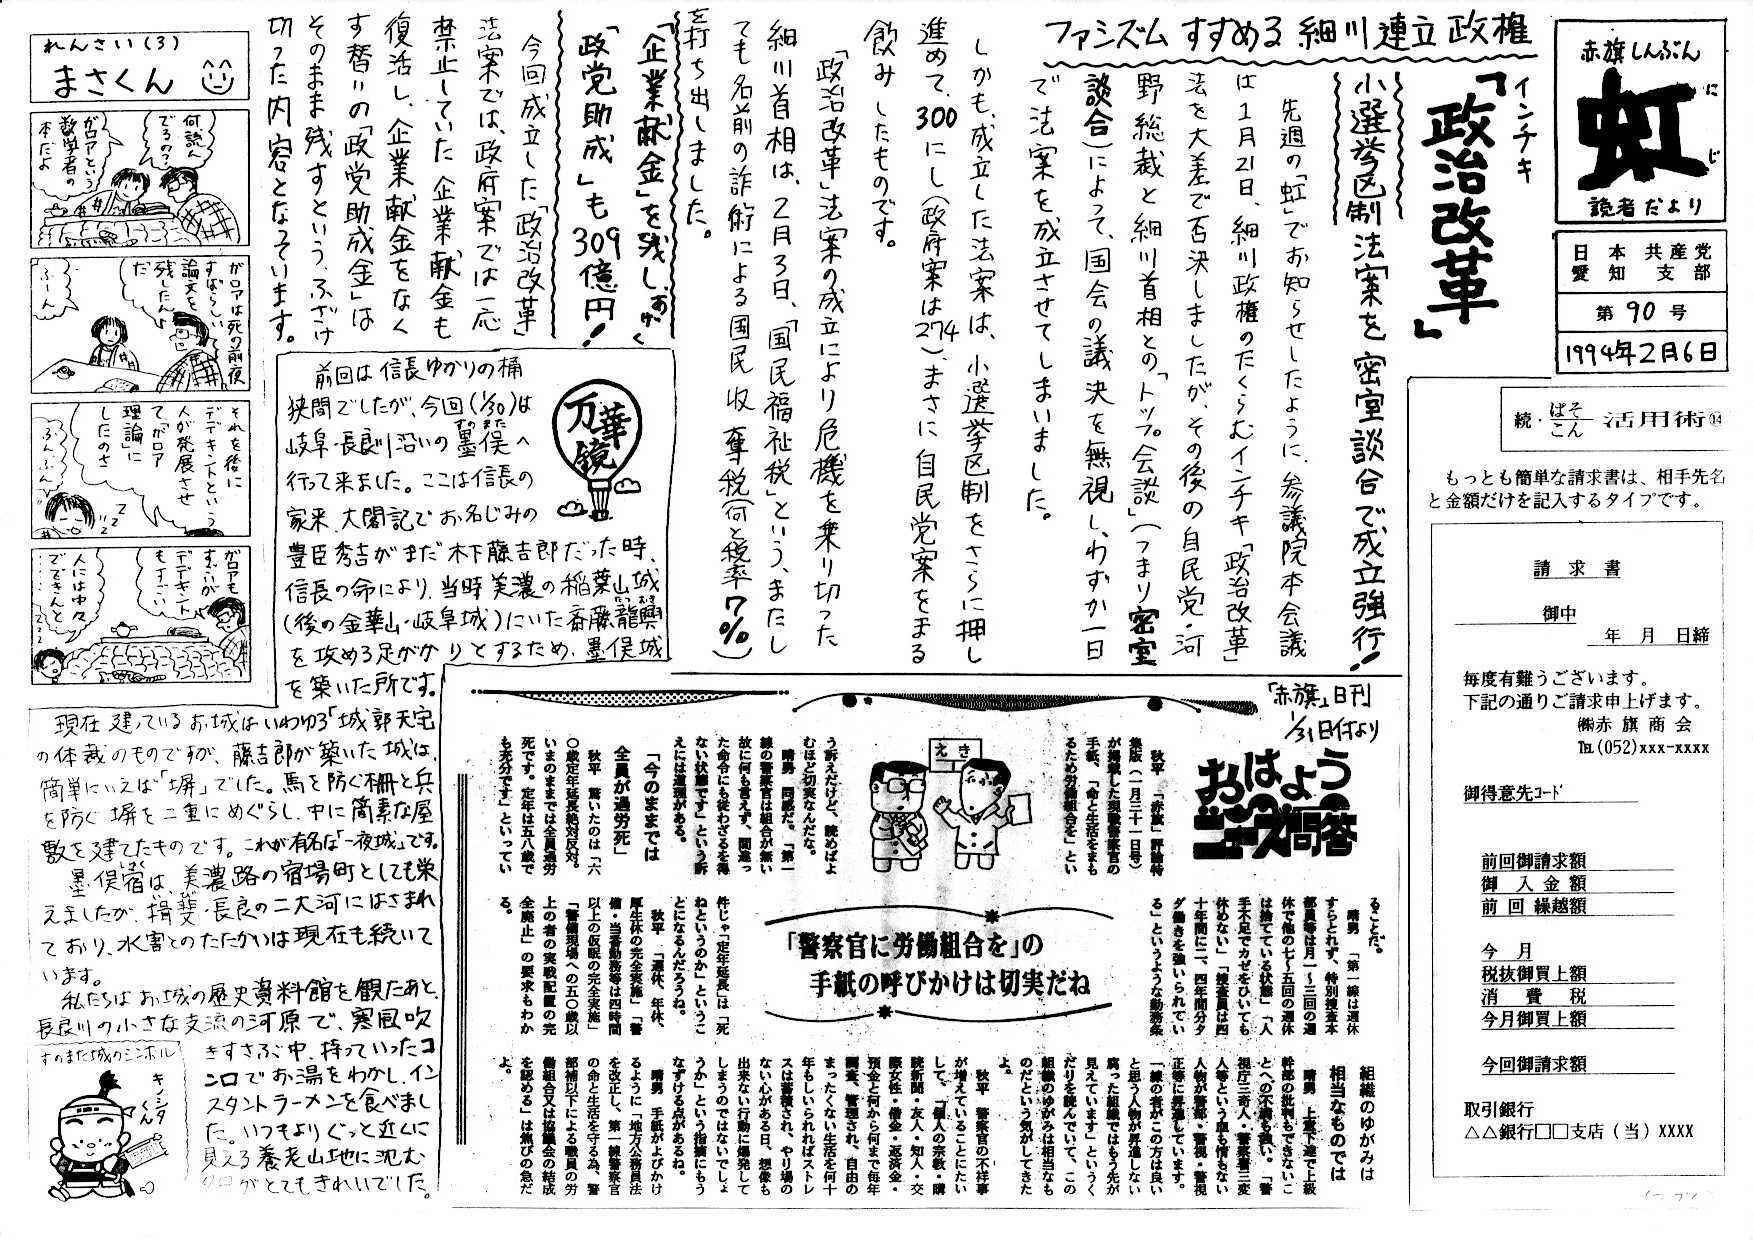 赤旗しんぶん
虹
にじ
読者だより
日本共産党
愛知支部
第90号
1994年2月6日
ファシズムすすめる細川連立政権
インチキ
「政治改革」
小選挙区制法案を密室談合で成立強行!
先週の「虹」でお知らせしたように、参議院本会議
は1月21日、細川政権のたくらむインチキ「政治改革」
法を大差で否決しましたが、その後の自民党・河
野総裁と細川首相との「トップ会談」(つまり密室
談合)によって、国会の議決を無視し、わずか一日
で法案を成立させてしまいました。
しかも、成立した法案は、小選挙区制をさらに押し
進めて、300にし(政府案は274)、まさに自民党案をまる
飲みしたものです。
「政治改革」法案の成立により危機を乗り切った
細川首相は、2月3日、「国民福祉税」という、またし
ても名前の詐術による国民収奪税(何と税率7%)
を打ち出しました。
「企業献金」を残し、あげく
「政党助成」も309億円!
今回成立した「政治改革」
法案では、政府案では一応
禁止していた企業献金も
復活し、企業献金をなく
す替りの「政党助成金」は
そのまま残すという、ふざけ
切った内容となっています。
れんさい(3)
まさくん
何読ん
でるの?
ガロアという
数学者の
本だよ
ガロアは死の前夜
すばらしい
論文を
残したんよ
だ
ふーん
それを後に
デデキントという
人が発展させ
て、「ガロア
理論」に
したのさ
ふんふん
ガロアも
すごいが
デデキント
もすごい
人には中々
できんと
……
万華鏡
前回は信長ゆかりの桶
狭間でしたが、今回(1/30)は
岐阜・長良川沿いの墨俣へ
すのまた
行って来ました。ここは信長の
家来、太閤記でお名じみの
豊臣秀吉がまだ木下藤吉郎だった時、
信長の命により、当時美濃の稲葉山城
(後の金華山・岐阜城)にいた斎藤龍興
たつおき
を攻める足がかりとするため、墨俣城
を築いた所です。
現在建っているお城はいわゆる「城郭天守」
の体裁のものですが、藤吉郎が築いた城は、
簡単にいえば「塀」でした。馬を防ぐ柵と兵
を防ぐ塀を二重にめぐらし、中に簡素な屋
敷を建てたものです。これが有名な「一夜城」です。
墨俣宿は、美濃路の宿場町としても栄
えましたが、揖斐・長良の二大河にはさまれ
ており、水害とのたたかいは現在も続いて
います。
私たちはお城の歴史資料館を観たあと、
長良川の小さな支流の河原で、寒風吹
きすさぶ中、持っていったコ
ンロでお湯をわかし、イン
スタントラーメンを食べまし
た。いつもよりぐっと近くに
見える養老山地に沈む
夕日がとてもきれいでした。
すのまた城のシンボル
キノシタ
くん
「赤旗」日刊
1/31日付より
おはよう
ニュース問答
えき
秋平 「赤旗」評論特
集版(一月三十一日号)
が掲載した現職警察官の
手紙、「命と生活をまも
るため労働組合を」とい
う訴えだけど、読めばよ
むほど切実なんだな。
晴男 同感だ。「第一
線の警察官は組合が無い
故に何も言えず、間違っ
た命令にも従わざるを得
ない状態です」という訴
えには道理がある。
「今のままでは
全員が過労死」
秋平 驚いたのは「六
〇歳定年延長絶対反対。
いまのままでは全員過労
死です。定年は五八歳で
も充分です」といってい
ることだ。
晴男 「第一線は週休
すらとれず、特別捜査本
部員等は月一~三回の週
休で他の七~五回の週休
は捨てている状態」「人
手不足でカゼをひいても
休めない」「捜査員は四
十年間に二、四年間分タ
ダ働きを強いられてい
る」というような勤務条
件じゃ「定年延長」は「死
ねというのか」というこ
とになるんだろうね。
秋平 「週休、年休、
厚生休の完全実施」「警
備・当番勤務等は四時間
以上の仮眠の完全実施」
「警備現場への五〇歳以
上の者の実戦配置の完
全廃止」の要求もわか
る。
「警察官に労働組合を」の
手紙の呼びかけは切実だね
組織のゆがみは
相当なものでは
晴男 上意下達で上級
幹部の批判もできないこ
とへの不満も強い。「警
視庁三奇人・警察署三変
人等という血も情もない
人物が警部・警視・警視
正等に昇進しています。
一線の者がこの方は良い
と思う人物が昇進しない
腐った組織ではもう先が
見えています」というく
だりを読んでいて、この
組織のゆがみは相当なも
のだという気がしてきた
よ。
秋平 警察官の不祥事
が増えていることにたい
して、「個人の宗教・購
読新聞・友人・知人・交
際女性・借金・返済金・
預金と何から何まで毎年
調査、管理され、自由の
まったくない生活を何十
年もしいられればストレ
スは蓄積され、やり場の
ない心がある日、想像も
出来ない行動に爆発して
しまうのではないでしょ
うか」という指摘にもう
なずける点があるね。
晴男 手紙がよびかけ
るように「地方公務員法
を改正し、第一線警察官
の命と生活を守る為、警
部補以下による職員の労
働組合又は協議会の結成
を認める」は焦びの急だ
よ。
続・ぱそこん活用術⑭
もっとも簡単な請求書は、相手先名
と金額だけを記入するタイプです。
請求書
御中
年 月 日締
毎度有難うございます。
下記の通りご請求申上げます。
㈱赤旗商会
℡(052)xxx-xxxx
御得意先コード
前回御請求額
御入金額
前回繰越額
今月
税抜御買上額
消費税
今月御買上額
今回御請求額
取引銀行
△△銀行□□支店(当)XXXX